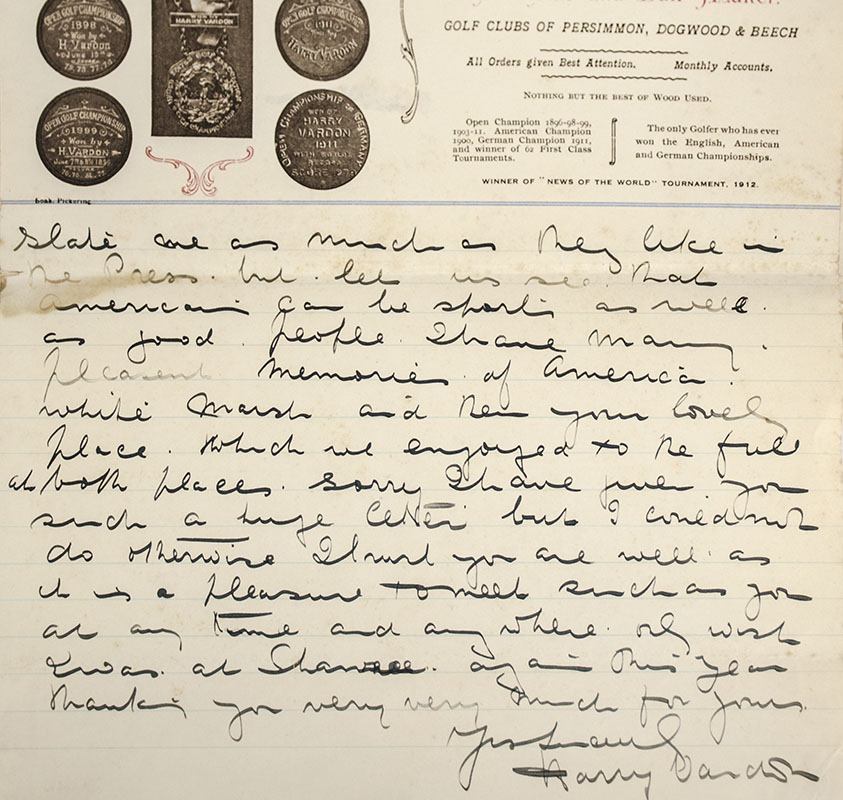 OPEN GOLF CHAMPIONSHIP
1898
Won by
H. Vardon
HARRY VARDON
OPEN GOLF CHAMPIONSHIP
1911
HARRY VARDON
GOLF CLUBS OF PERSIMMON, DOGWOOD & BEECH
All Orders given Best Attention. Monthly Accounts.
NOTHING BUT THE BEST OF WOOD USED.
OPEN GOLF CHAMPIONSHIP
1899
Won by
H. VARDON
OPEN CHAMPIONSHIP OF GERMANY
WON BY
HARRY
VARDON
1911
Open Champion 1896-98-99,
1903-11. American Champion
1900, German Champion 1911,
and winner of 62 First Class
Tournaments.
The only Golfer who has ever
won the English, American
and German Championships.
WINNER OF "NEWS OF THE WORLD" TOURNAMENT, 1912.
Soak, Pickering
slate me as much as they like in
the Press. but. let us see. that
Americans can be sports as well.
as good. people. I have many.
pleasent memories of America.
white Marsh and then your lovely
place. Which we engoyed to the full
at both places. Sorry I have given you
such a huge letter but I could not
do otherwise I trust you are well. as
it is a pleasure to meet such as you
at any time and any where. only wish
I was. at Shawnee. again this year
thanking you very very much for yours.
Harry Vardon